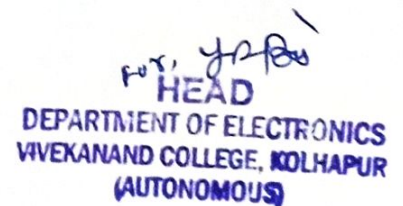 for,
HEAD
DEPARTMENT OF ELECTRONICS
VIVEKANAND COLLEGE, KOLHAPUR
(AUTONOMOUS)